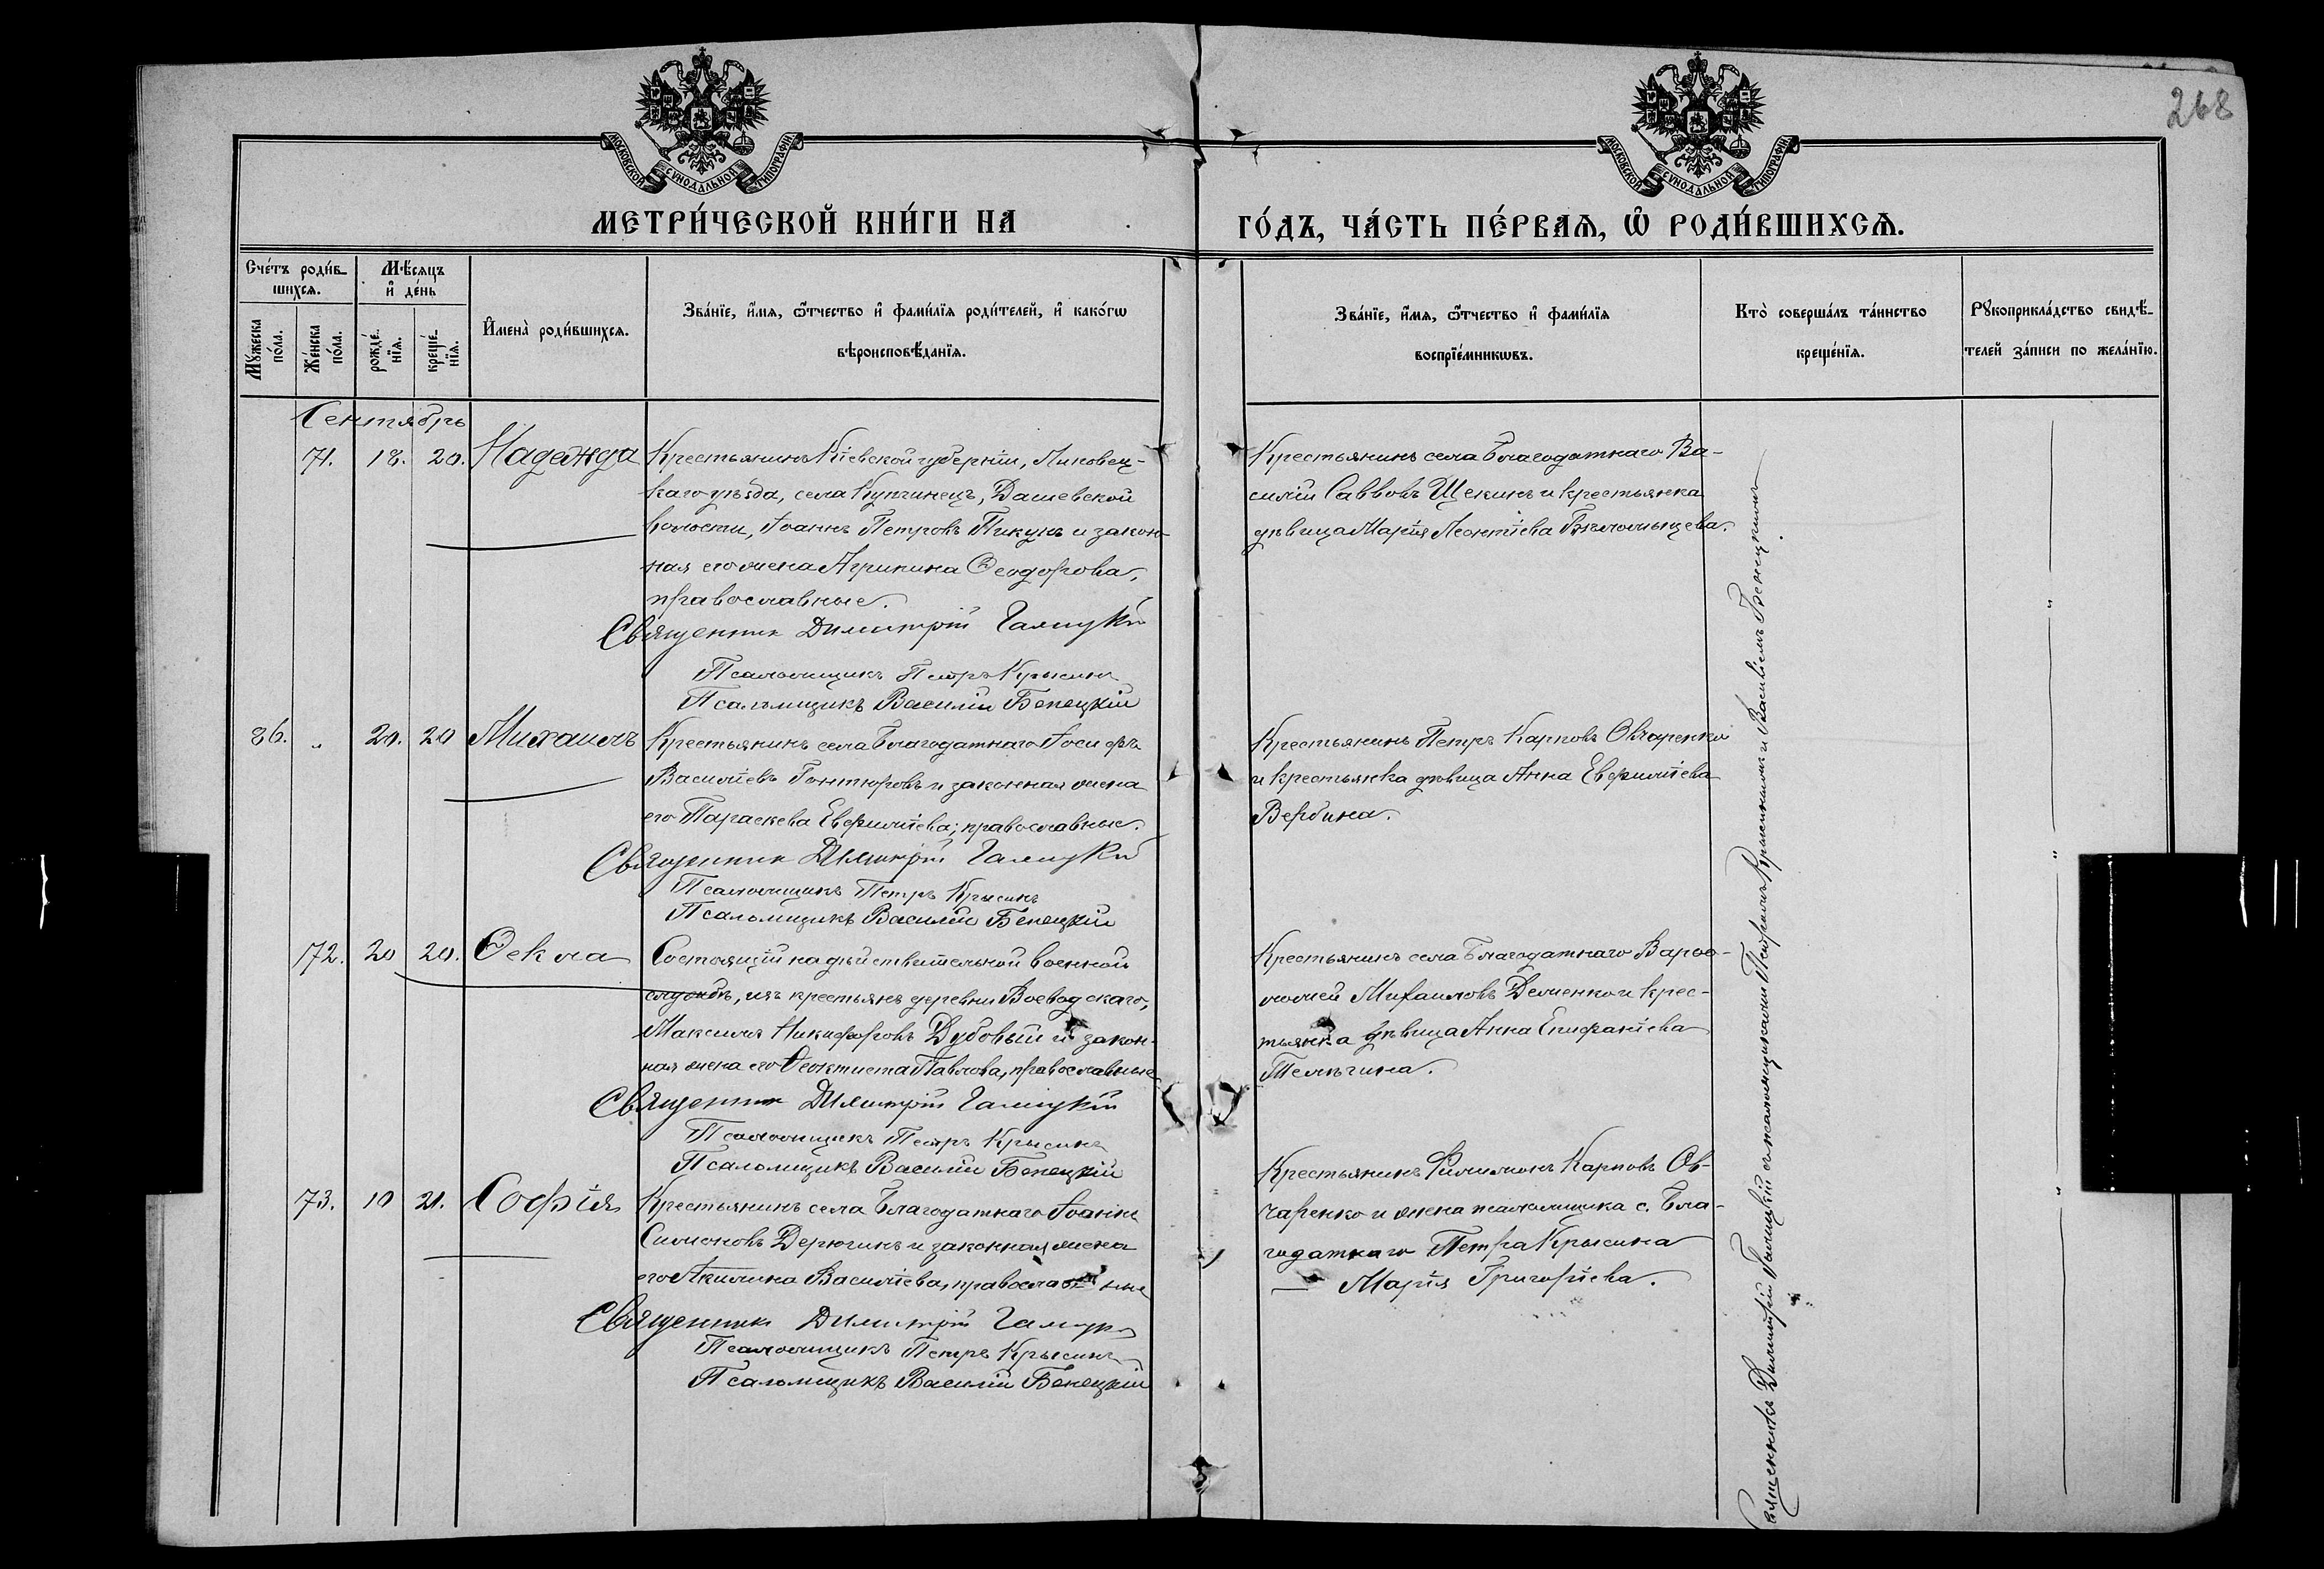 268
МОСКОВСКОЙ СУНОДАЛЬНОЙ ТИПОГРАФІИ
МОСКОВСКОЙ СУНОДАЛЬНОЙ ТИПОГРАФІИ
МЕТРИ́ЧЕСКОЙ КНИ́ГИ НА
ГО́ДЪ, ЧА́СТЬ ПЕ́РВАѦ, Ѡ РОДИ́ВШИХСѦ.
Сче́тъ роди́в-
шихсѧ.
Мꙋжеска
по́ла.
Же́нска
по́ла.
Мѣ́сѧцъ
и де́нь
рожде́-
нїѧ.
креще́-
нїѧ.
Имена̀ роди́вшихсѧ.
Зва́нїе, и́мѧ, ѻ́тчество и фами́лїѧ роди́телей, и како́гѡ
вѣроисповѣ́данїѧ.
Зва́нїе, и́мѧ, ѻ́тчество и фами́лїѧ
воспрїе́мникѡвъ.
Кто̀ соверша́лъ та́инство
креще́нїѧ.
Рꙋкоприкла́дство свидѣ́-
телей за́писи по жела́нїю.
Сентябрь
71. 18. 20. Надежда
Крестьянинъ Кіевской губерніи, Липовец-
каго уѣзда, села Купчинецъ, Дашевской
волости, Іоаннъ Петровъ Пикунъ и закон-
ная его жена Агрипина Ѳеодорова,
православные.
Священник Димитрій Галицкій
Псаломщикъ Петръ Крысинъ
Псаломщикъ Василій Бенецкій
Крестьянинъ села Благодатнаго Ва-
силій Саввовъ Щекинъ и крестьянка
дѣвица Марія Леонтіева
86. " 20. 20 Михаилъ
Крестьянинъ села Благодатнаго Іосифъ
Васильевъ и законная жена
его Параскева Евфиміева; православные.
Священник Димитрій Галицкій
Псаломщикъ Петръ Крысинъ
Псаломщикъ Василій Бенецкій
Крестьянинъ Петръ Карповъ Овчаренко
и крестьянка дѣвица Анна Евфиміева
Вербина.
72. 20 20. Ѳекла
Состоящій на дѣйствительной военной
службѣ, изъ крестьянъ деревни Воеводскаго,
Максимъ Никифоровъ Дубовый и закон-
ная жена его Ѳеоктиста Павлова, православные
Священник Димитрій Галицкій
Псаломщикъ Петръ Крысинъ
Псаломщикъ Василій Бенецкій
Крестьянинъ села Благодатнаго Варѳо-
ломей Михаиловъ Деменко и крес-
тьянка дѣвица Анна Епифаніева
73. 10 21. Софія
Крестьянинъ села Благодатнаго Іоаннъ
Симоновъ Дерюгинъ и законная жена
его Акилина Васильева, православные
Священник Димитрій Галицкій
Псаломщикъ Петръ Крысинъ
Псаломщикъ Василій Бенецкій
Крестьянинъ Филимонъ Карповъ Ов-
чаренко и жена псаломщика с. Бла-
годатнаго Петра Крысина
Марія Григорьева.
Священникъ Димитрій Галицкій съ псаломщиками Петромъ Крысинымъ и Василіемъ Бенецкимъ